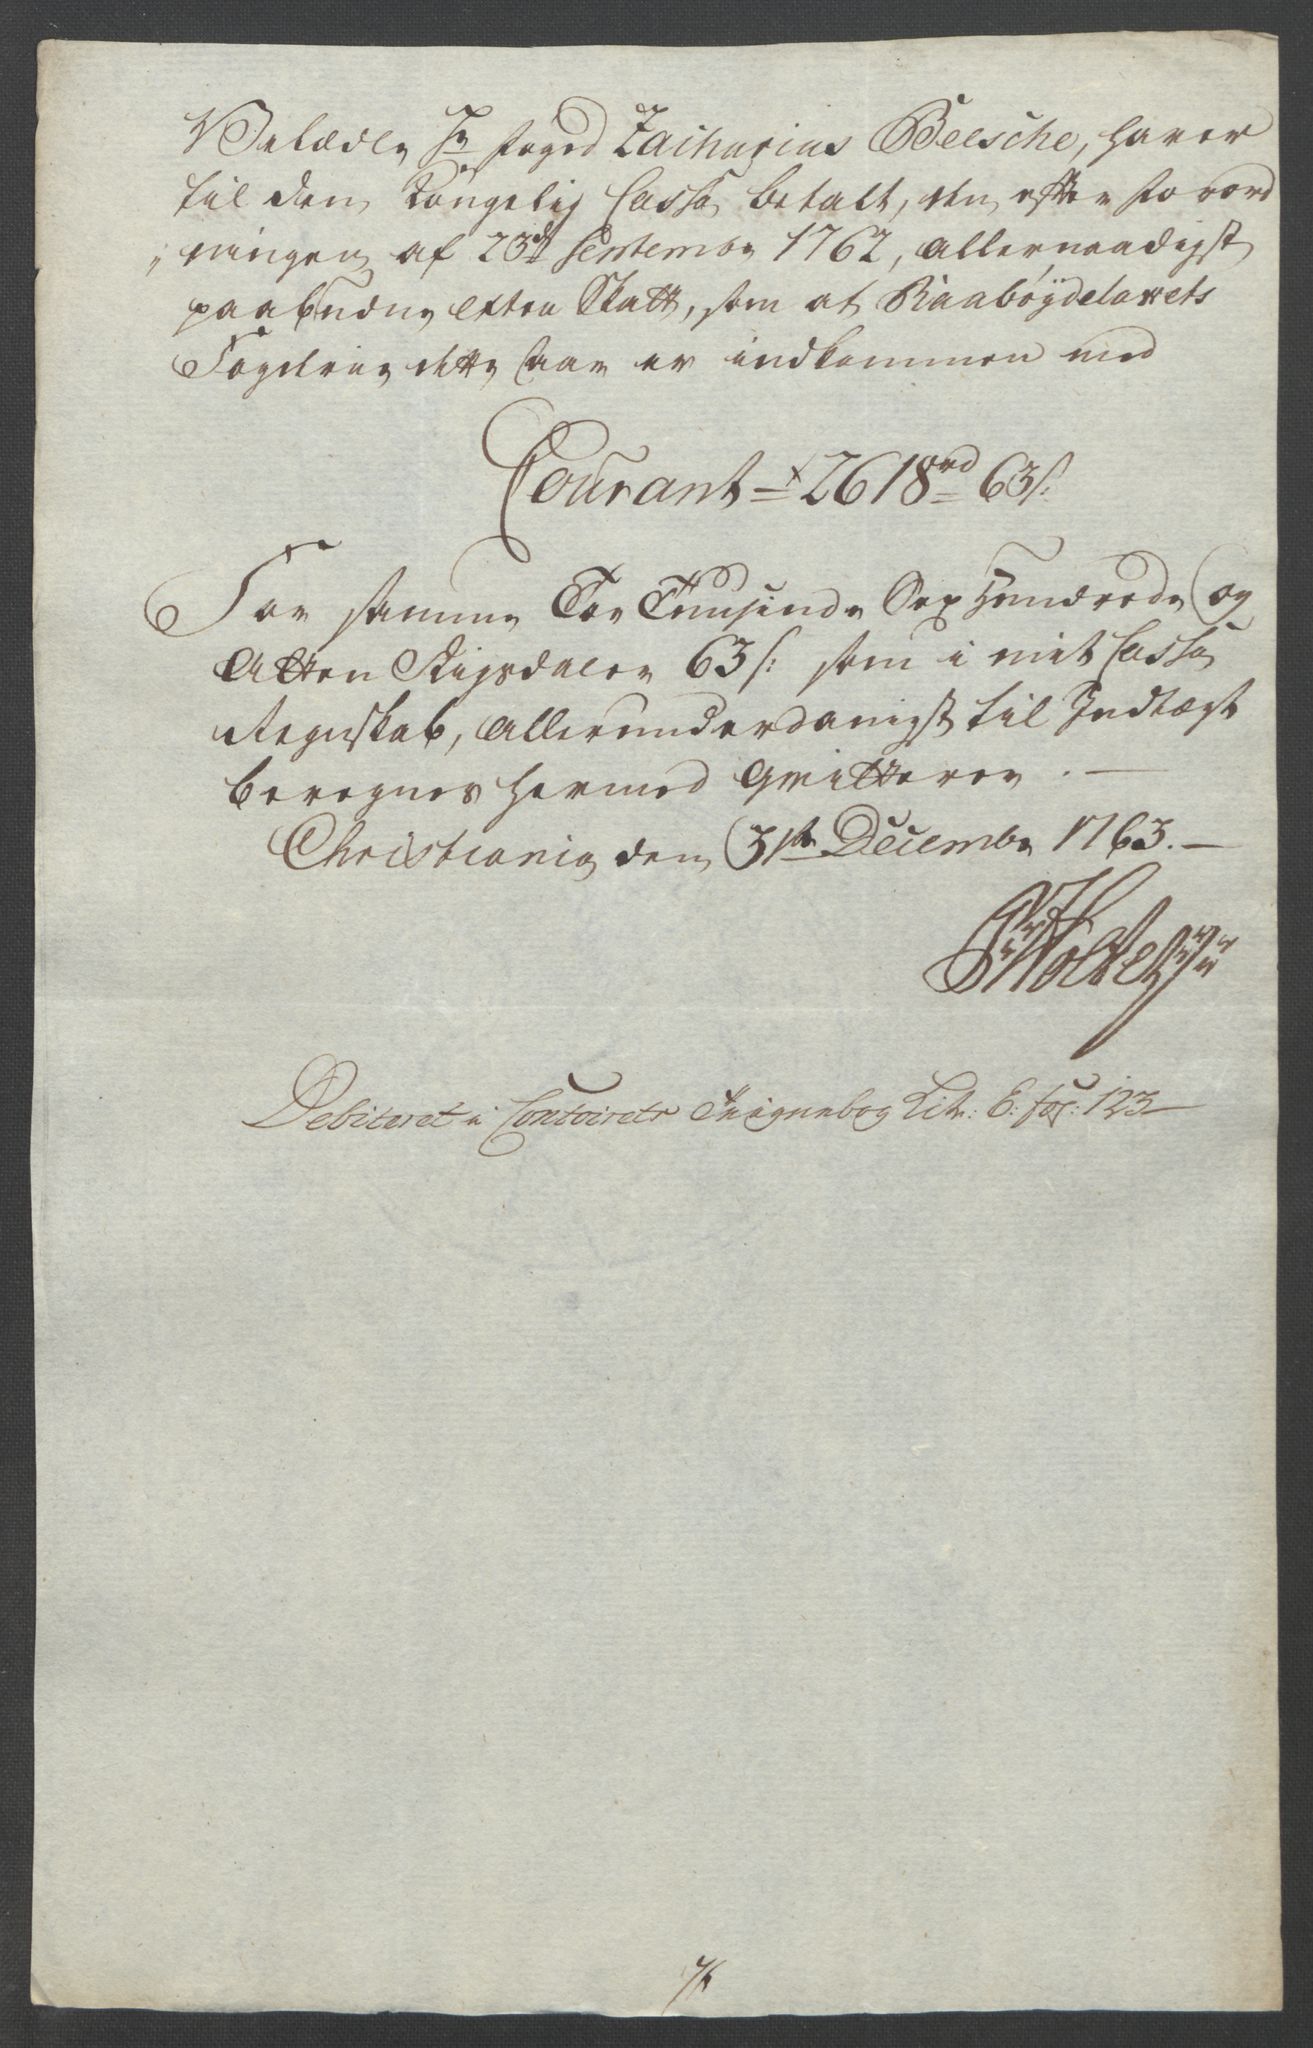 Velædle Hr Foged Zacharias Beesche, haver
til den Kongelig Cassa betalt, den efter Forord
ningen af 23de Septembr 1762, allernaadigst
paabudne Extra Skatt, som at Raabøydelavets
Fogderie dette Aar er indkommen med
Courant = 2618 rd 63 s:
For samme Toe Tuusinde Sex Hundrede og
Atten Rigsdaler 63 s: som i mit Cassa
Regnskab, allerunderdanigst til Indtægt
beregnes hermed qvitterer. —
Christiania den 31te Decembr 1763. —
Holte
Debiteret i Contoirets Skiønnebog Litr: E: fol: 123 —